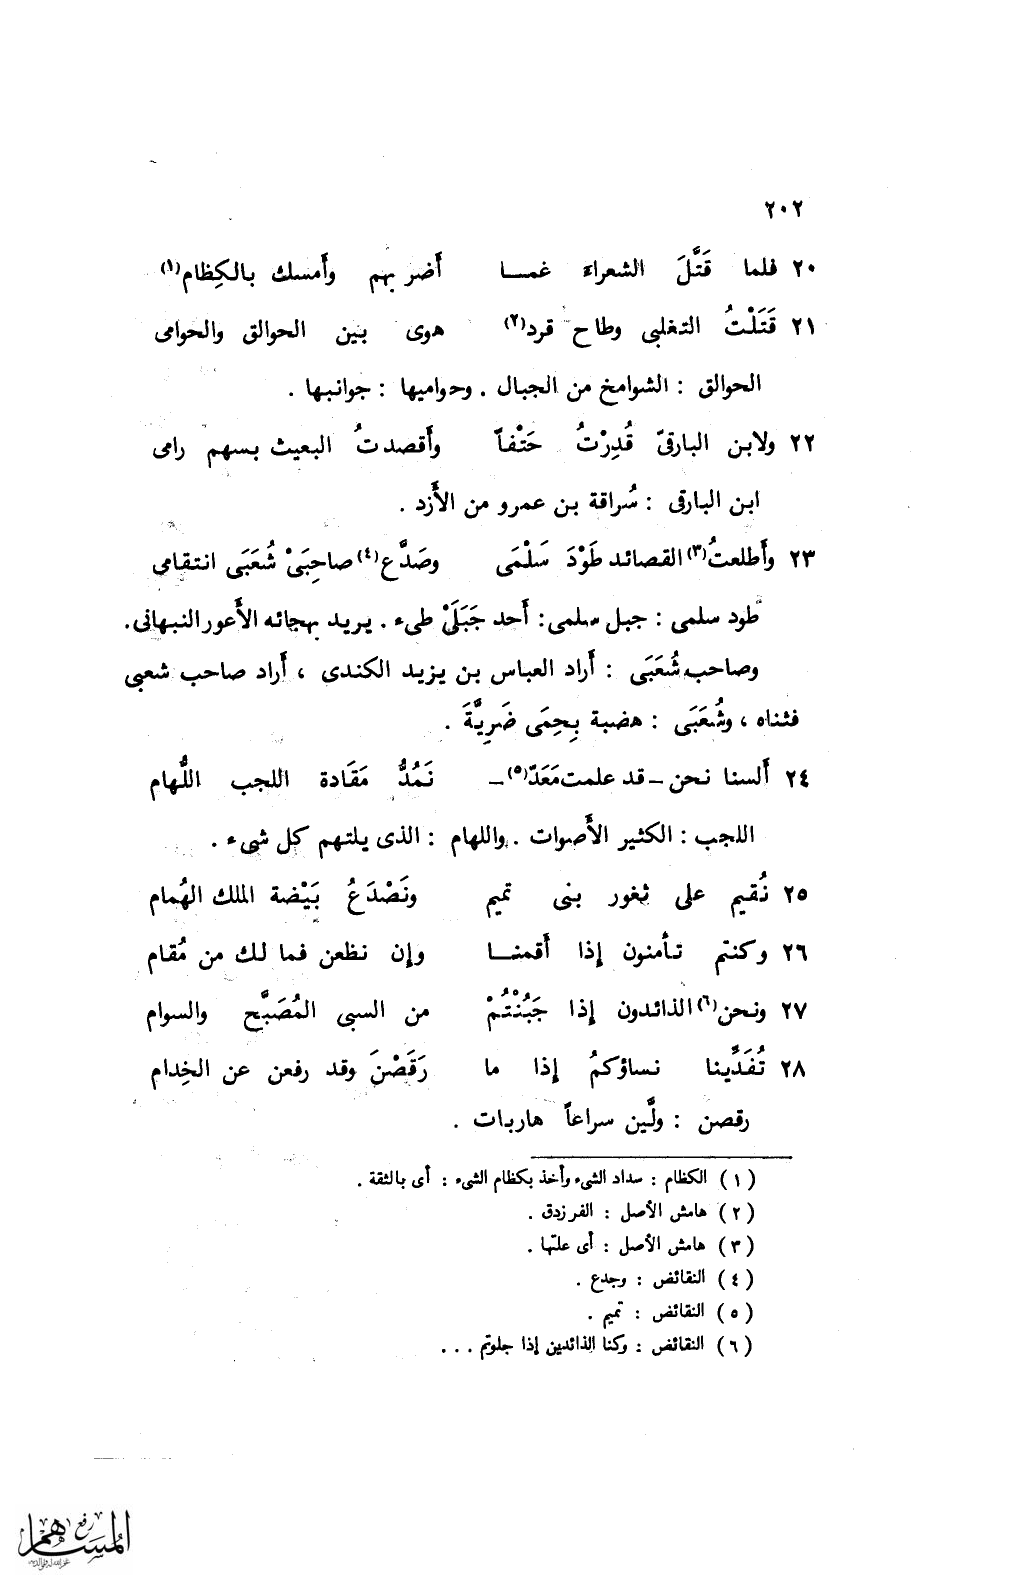 ٢٠٢
٢٠ فلما قَتَّلَ الشعراءَ غمـا أَضر بهم وأَمسك بالكِظام(١)
٢١ قَتَلْتُ التغلبى وطاح قرد(٢) هوى بين الحوالق والحوامى
الحوالق : الشوامخ من الجبال . وحواميها : جوانبها .
٢٢ ولابن البارقىّ قُدِرْتُ حَتْفاً وأَقصدتُ البعيث بسهم رامى
ابن البارقى : سُراقة بن عمرو من الأَزد .
٢٣ وأَطلعتُ(٣) القصائد طَوْدَ سَلْمَى وصَدَّع(٤) صاحِبَىْ شُعَبَى انتقامى
طود سلمى : جبل سلمى: أَحد جَبَلَىْ طيء . يريد بهجائه الأَعور النبهانى .
وصاحب شُعَبَى : أَراد العباس بن يزيد الكندى ، أَراد صاحب شعبى
فثناه ، وشُعَبَى : هضبة بِحِمَى ضَرِيَّةَ .
٢٤ أَلسنا نحن – قد علمت مَعَدّ(٥) – نَمُدُّ مَقَادة اللجب اللُّهام
اللجب : الكثير الأَصوات . واللهام : الذى يلتهم كل شىء .
٢٥ نُقيم على ثغور بنى تميم ونَصْدَعُ بَيْضة الملك الهُمام
٢٦ وكنتم تأمنون إذا أَقمنـا وإن نظعن فما لك من مُقام
٢٧ ونحن(٦) الذائدون إذا جَبُنْتُمْ من السبى المُصَبَّح والسوام
٢٨ تُفَدِّينا نساؤكمُ إذا ما رَقَصْنَ وقد رفعن عن الخِدام
رقصن : ولَّين سراعاً هاربات .
(١) الكظام : سداد الشىء وأخذ بكظام الشىء : أى بالثقة .
(٢) هامش الأصل : الفرزدق .
(٣) هامش الأصل : أى علتها .
(٤) النقائض : وجدع .
(٥) النقائض : تميم .
(٦) النقائض : وكنا الذائدين إذا جلوتم . . .
رفع
المساهم